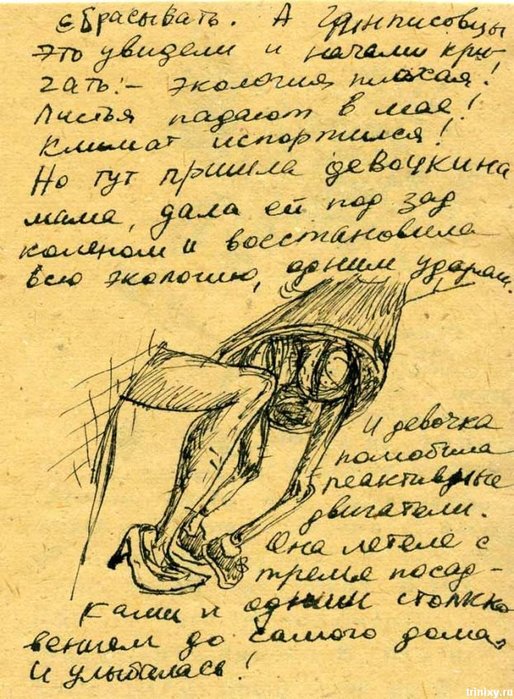 сбрасывать. А Гринписовцы
это увидели и начали кри-
чать:- экология плохая!
Листья падают в мае!
Климат испортился!
Но тут пришла девочкина
мама, дала ей под зад
коленом и восстановила
всю экологию, одним ударом.
И девочка
полюбила
реактивные
двигатели.
Она летела с
тремя посад-
ками и одним столкно
вением до самого дома,
И улыбалась!
trinixy.ru